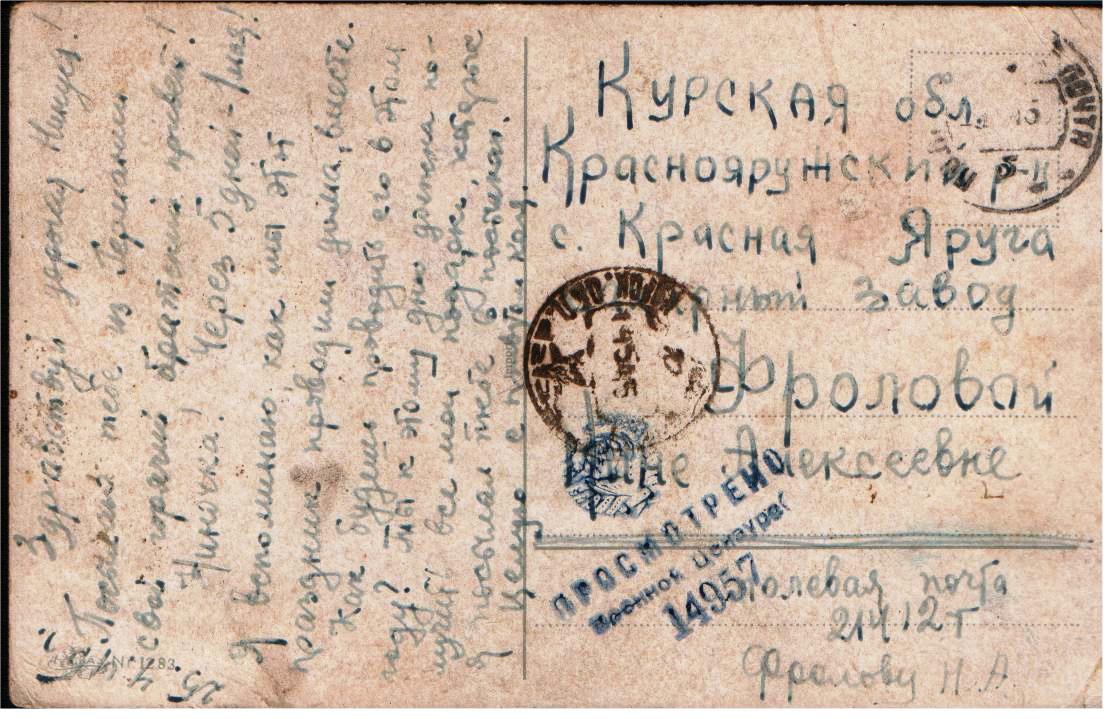 Здравствуй дорогая Нинуся!
Посылаю тебе из Германии
свой горячий братский привет!
Ниночка! Через 5 дней - 1 мая!
Я вспоминаю как мы этот
праздник проводили дома, вместе.
Как будеш проводить его в этом
году? Ты к этому дню должна по-
лучить все мои подарки, которые
я посылал тебе в
Целую с приветом Коля.
25.4.45
Nr 1283
Курская обл.
Краснояружский р-н
с. Красная Яруга
завод
Фроловой
Нине Алексеевне
Полевая почта
21412т
Фролову Н. А.
ПРОСМОТРЕНО
Военной Цензурой
14957
ПОЧТА
45